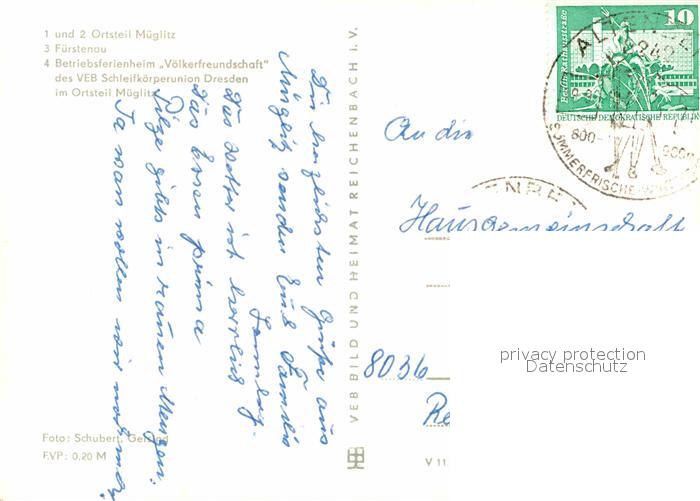 1 und 2 Ortsteil Müglitz
3 Fürstenau
4 Betriebsferienheim „Völkerfreundschaft"
des VEB Schleifkörperunion Dresden
im Ortsteil Müglitz
Die herzlichsten Grüße aus
Müglitz senden Euch Familie
Das Wetter ist herrlich
das Essen prima
Pilze gibts in rauen Mengen.
Ja was wollen wir noch mehr
Foto: Schubert,
FVP: 0,20 M
VEB BILD UND HEIMAT REICHENBACH I. V.
V 11
An die
Hausgemeinschaft
8036
Re
10
Berlin, Rathausstraße
DEUTSCHE DEMOKRATISCHE REPUBLIK
ALTENBE
800-
SOMMERFRISCHE
ENBE
privacy protection
Datenschutz